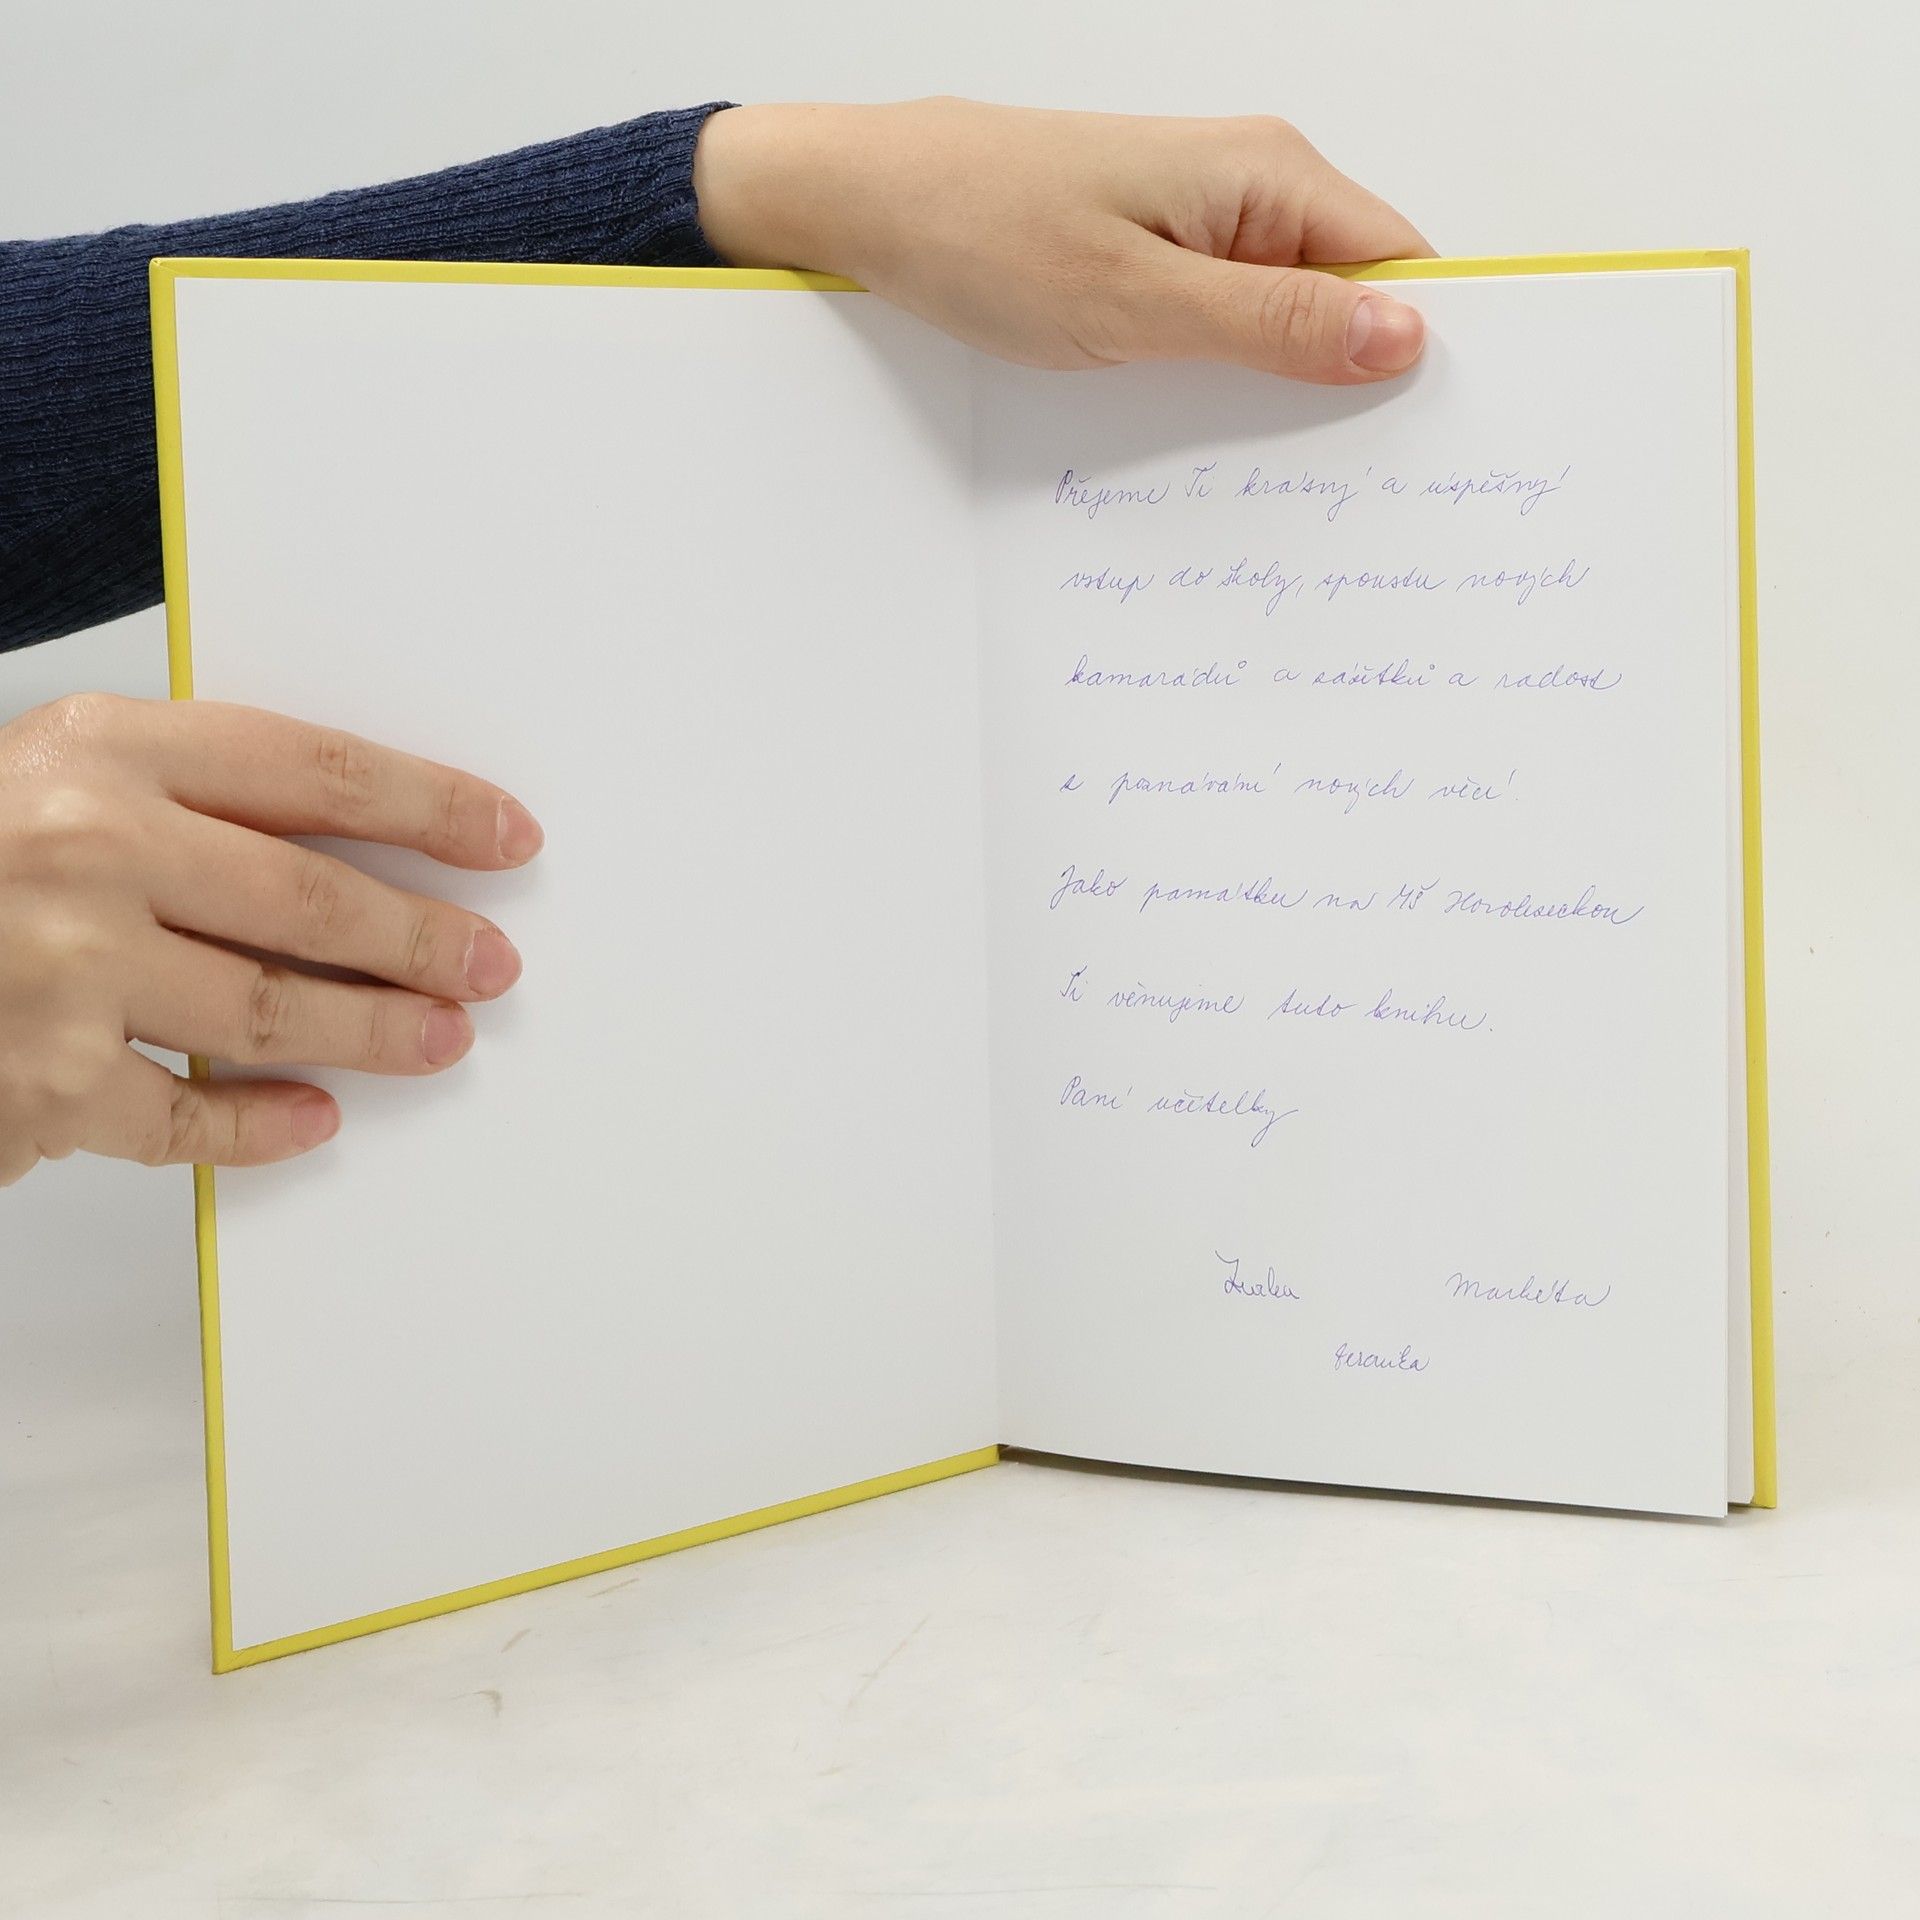 Přejeme Ti krásný a úspěšný
vstup do školy, spoustu nových
kamarádů a zážitků a radost
s poznávání nových věcí.
Jako památku na MŠ Horoleseckou
Ti věnujeme tuto knihu.
Paní učitelky
Markéta
Veronika